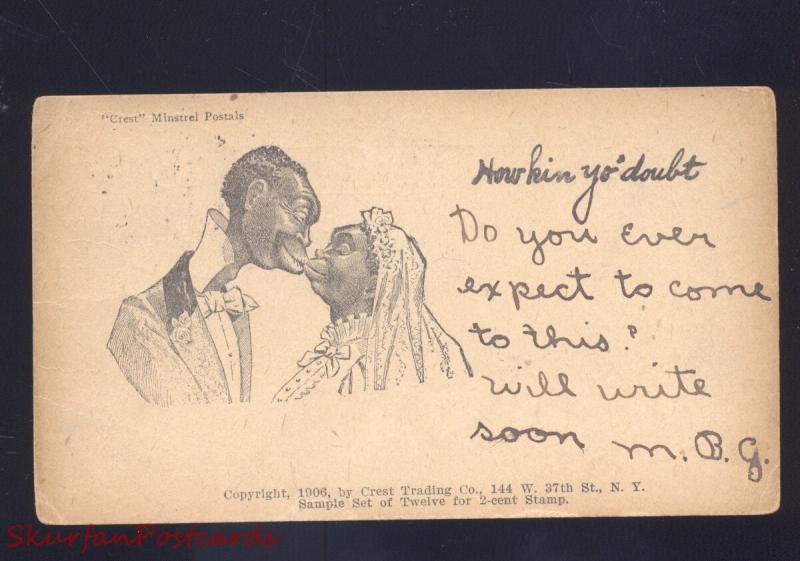 "Crest" Minstrel Postals
How kin yo' doubt
Do you ever
expect to come
to this?
will write
soon M. B. G.
Copyright, 1906, by Crest Trading Co., 144 W. 37th St., N. Y.
Sample Set of Twelve for 2-cent Stamp.
SkurfanPostcards